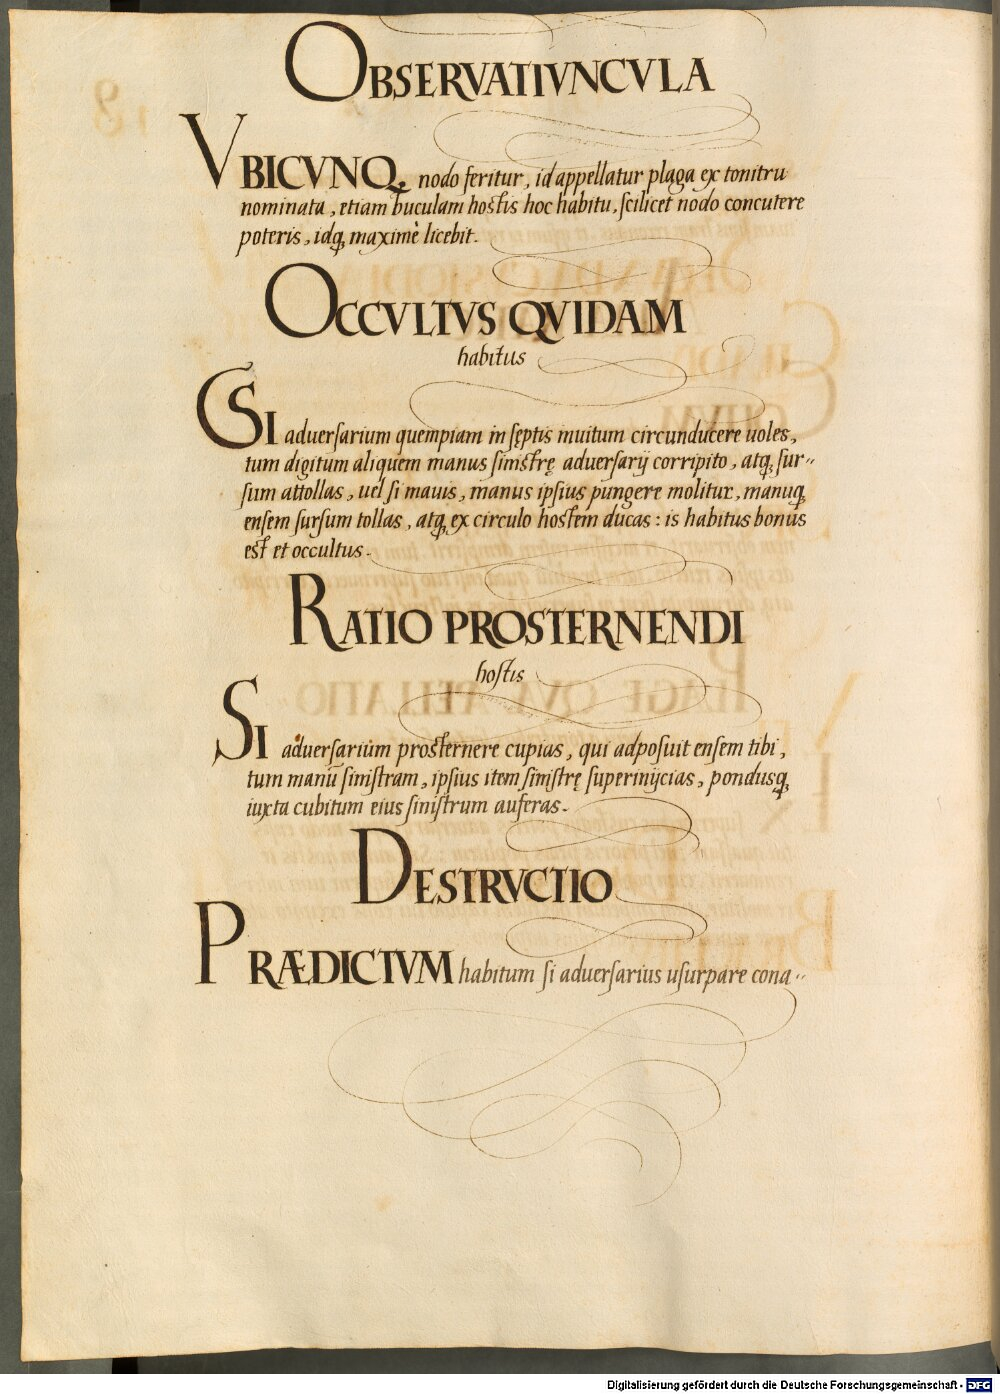 OBSERVATIVNCVLA
VBICVNQ, nodo feritur, id appellatur plaga ex tonitru
nominata, etiam buculam hostis hoc habitu, scilicet nodo concutere
poteris, idq, maximè licebit.
OCCVLTVS QVIDAM
habitus
SI aduersarium quempiam in sęptis muitum circunducere uoles,
tum digitum aliquem manus sinistrę aduersarij corripito, atq, sur-
sum attollas, uel si mauis, manus ipsius pungere molitur, manuq,
ensem sursum tollas, atq, ex circulo hostem ducas: is habitus bonus
est et occultus.
RATIO PROSTERNENDI
hostis
SI aduersarium prosternere cupias, qui adposuit ensem tibi,
tum manū sinistram, ipsius item sinistrę superinijcias, pondusq,
iuxta cubitum eius sinistrum auferas.
DESTRVCTIO
PRÆDICTVM habitum si aduersarius usurpare cona-
Digitalisierung gefördert durch die Deutsche Forschungsgemeinschaft - DFG